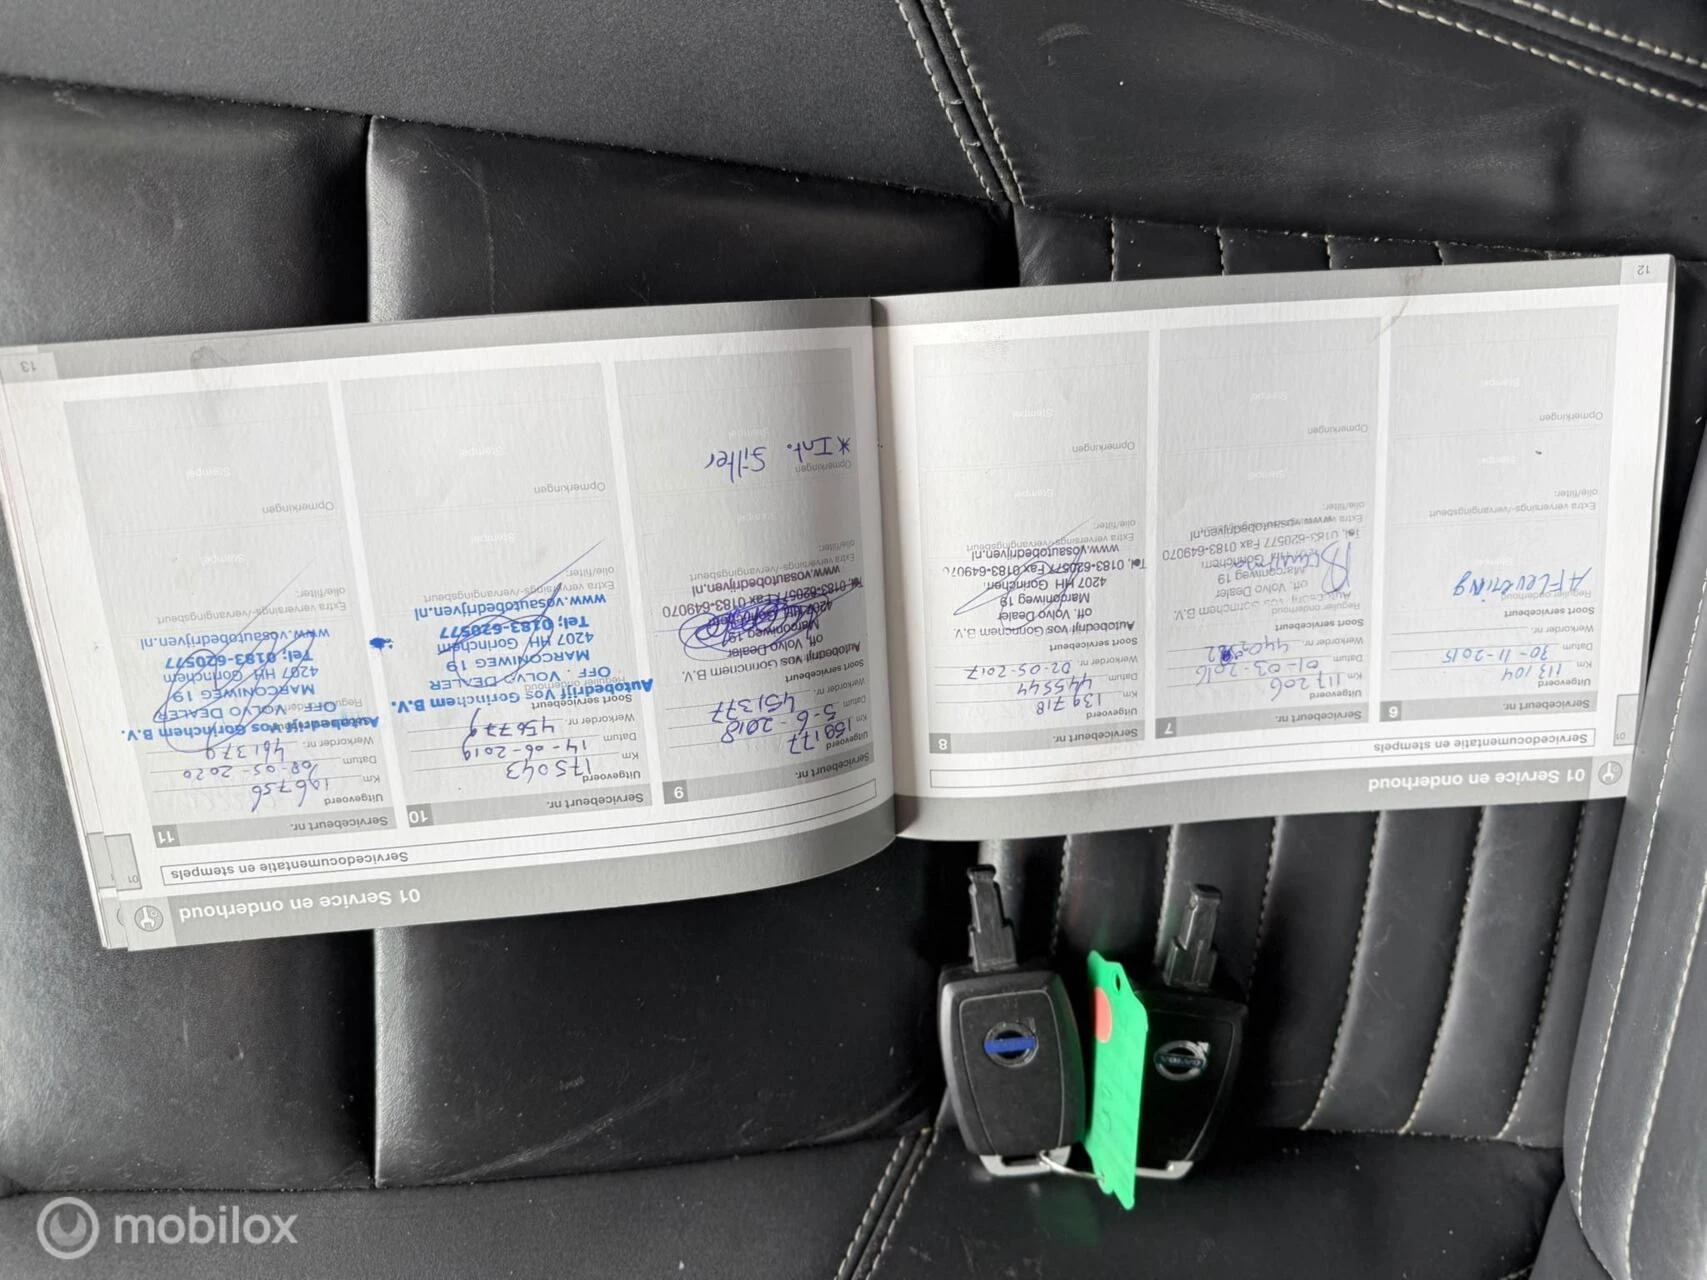 12
01 Service en onderhoud
01
Servicedocumentatie en stempels
Servicebeurt nr. 6
Uitgevoerd
Km 113104
Datum 30-11-2015
Werkorder nr.
Soort servicebeurt
Regulier onderhoud
AFLevering
Extra verversings-/vervangingsbeurt
olie/filter:
Stempel
Opmerkingen
Stempel
Servicebeurt nr. 7
Uitgevoerd
Km 117206
Datum 01-03-2016
Werkorder nr.
Soort servicebeurt
Regulier onderhoud
off. Volvo Dealer
Marconiweg 19
4207 HH Gorinchem
Tel. 0183-620577 Fax 0183-649070
www.vosautobedrijven.nl
Extra verversings-/vervangingsbeurt
olie/filter:
Stempel
Opmerkingen
Stempel
Servicebeurt nr. 8
Uitgevoerd
Km 139718
Datum 02-05-2017
Werkorder nr. 445544
Soort servicebeurt
Autobedrijf Vos Gorinchem B.V.
off. Volvo Dealer
Marconiweg 19
4207 HH Gorinchem
Tel. 0183-620577 Fax 0183-649070
www.vosautobedrijven.nl
Extra verversings-/vervangingsbeurt
olie/filter:
Stempel
Opmerkingen
Stempel
13
01 Service en onderhoud
01
Servicedocumentatie en stempels
Servicebeurt nr. 9
Uitgevoerd
Km 159177
Datum 5-6-2018
Werkorder nr. 451377
Soort servicebeurt
Autobedrijf Vos Gorinchem B.V.
off. Volvo Dealer
Marconiweg 19
4207 HH Gorinchem
Tel. 0183-620577 Fax 0183-649070
www.vosautobedrijven.nl
Extra verversings-/vervangingsbeurt
olie/filter:
Stempel
Opmerkingen
* Int. filter
Stempel
Servicebeurt nr. 10
Uitgevoerd
Km 175043
Datum 14-06-2019
Werkorder nr. 456779
Soort servicebeurt
Regulier onderhoud
Autobedrijf Vos Gorinchem B.V.
OFF. VOLVO DEALER
MARCONIWEG 19
4207 HH Gorinchem
Tel: 0183-620577
www.vosautobedrijven.nl
Extra verversings-/vervangingsbeurt
olie/filter:
Stempel
Opmerkingen
Stempel
Servicebeurt nr. 11
Uitgevoerd
Km 196756
Datum 08-05-2020
Werkorder nr. 461379
Regulier onderhoud
Autobedrijf Vos Gorinchem B.V.
OFF. VOLVO DEALER
MARCONIWEG 19
4207 HH Gorinchem
Tel: 0183-620577
www.vosautobedrijven.nl
Extra verversings-/vervangingsbeurt
olie/filter:
Stempel
Opmerkingen
Stempel
VOLVO
mobilox